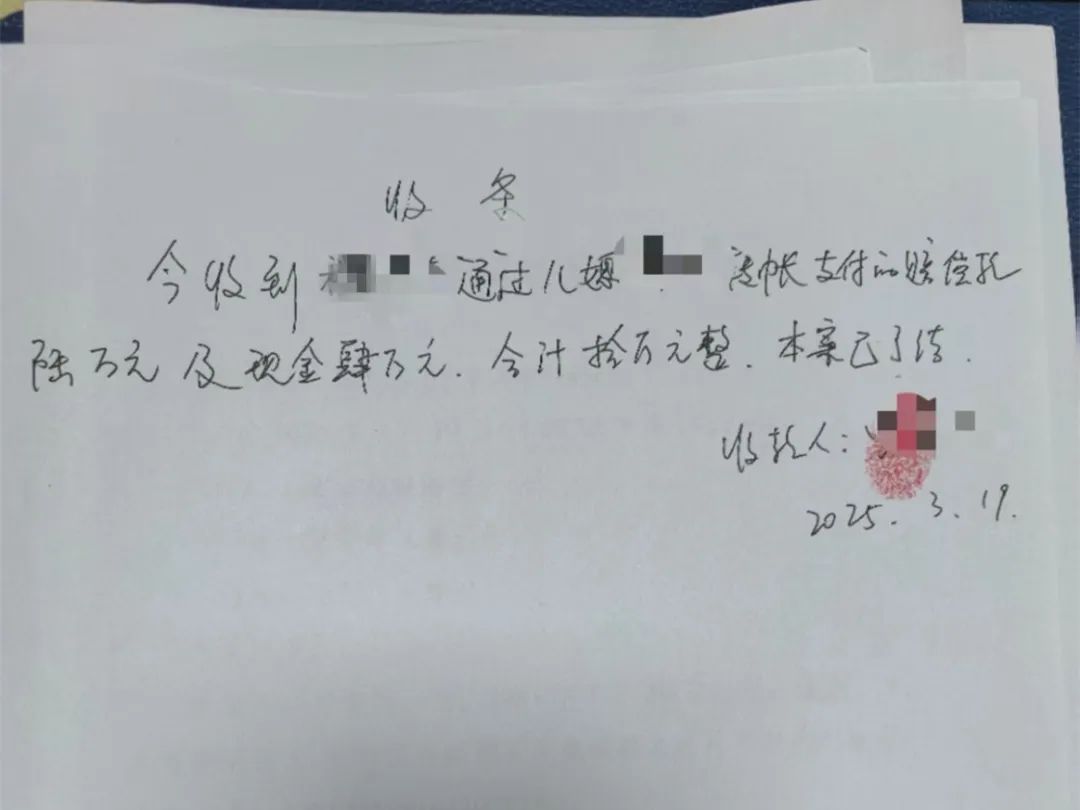 收条
今收到 通过儿媳 转帐支付的赔偿款
陆万元及现金肆万元.合计拾万元整.本案已了结.
收款人:
2025.3.19.